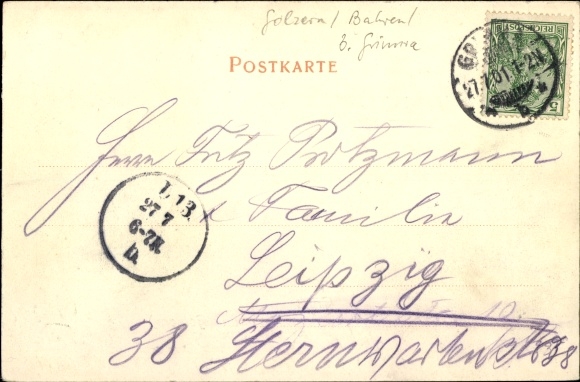 Golzern / Bahren /
b. Grimma
POSTKARTE
REICHSPOST
5
27.7.01. 1-2N.
b
Herrn Fritz Protzmann
& Familie
L. 13.
27 7
6-7N.
b.
Leipzig
38 Sternwartenstr 38